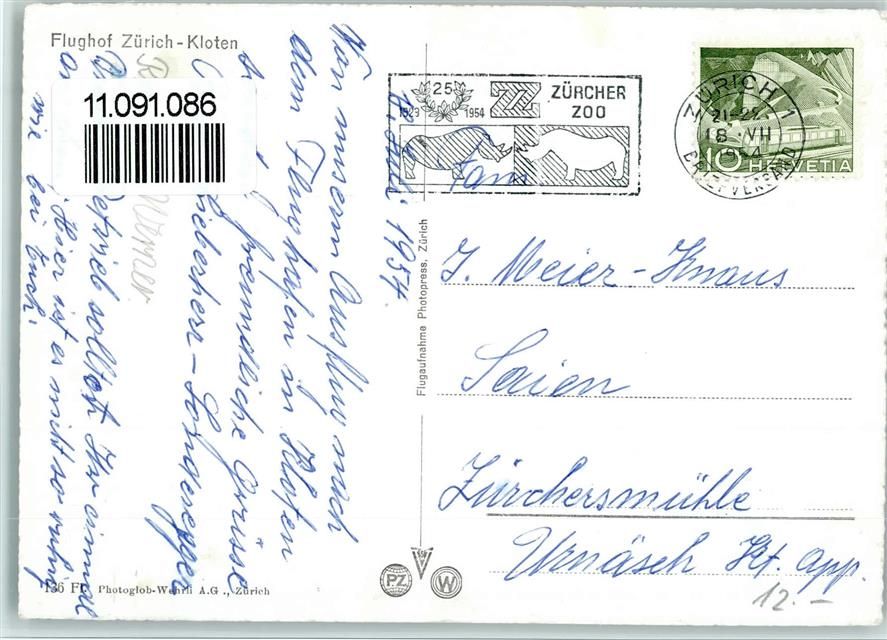 Flughof Zürich-Kloten
11.091.086
Von unserm Ausflug nach
dem Flughafen in Kloten
freundliche Grüsse
Werner
Betrieb solltet Ihr einmal
Hier ist es nicht so ruhig
wie bei Euch.
1954.
25
1929 1954
ZÜRCHER
ZOO
ZÜRICH 1
21-22
18.VII
1954
BRIEFVERSAND
10 HELVETIA
Fam
J. Meier-Knaus
Saien
Zürchersmühle
Urnäsch Kt. App.
12.-
Flugaufnahme Photopress, Zürich
PZ
W
Photoglob-Wehrli A.G., Zürich